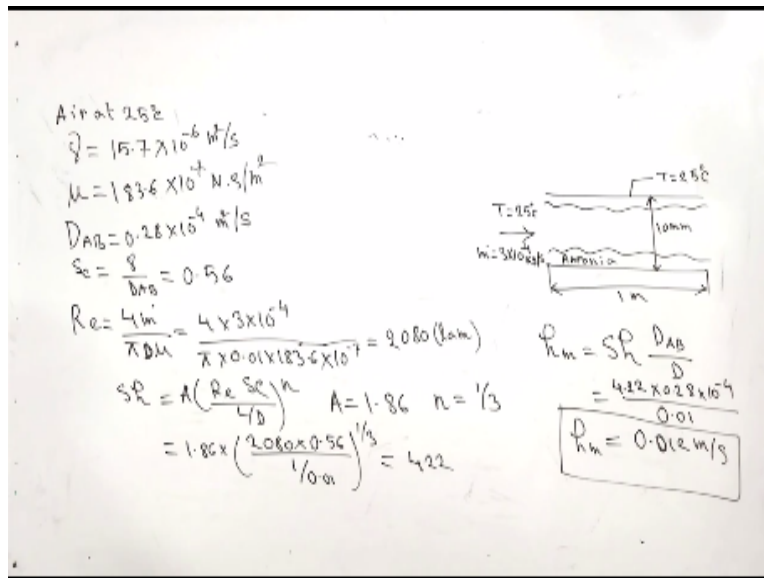 Air at 25°C
ϑ = 15.7 × 10⁻⁶ m²/s
μ = 183.6 × 10⁻⁷ N.s/m²
D_AB = 0.28 × 10⁻⁴ m²/s
Sc = ϑ / D_AB = 0.56
Re = 4ṁ / πDμ = 4 × 3×10⁻⁴ / π × 0.01 × 183.6 × 10⁻⁷ = 2080 (lam)
Sh = A (Re Sc / L/D)ⁿ A = 1.86 n = 1/3
= 1.86 × (2080 × 0.56 / 1/0.01)^1/3 = 4.22
T = 25°C
T = 25°C
10mm
ṁ = 3×10⁻⁴ kg/s
Ammonia
1 m
hm = Sh D_AB / D
= 4.22 × 0.28 × 10⁻⁴ / 0.01
hm = 0.012 m/s